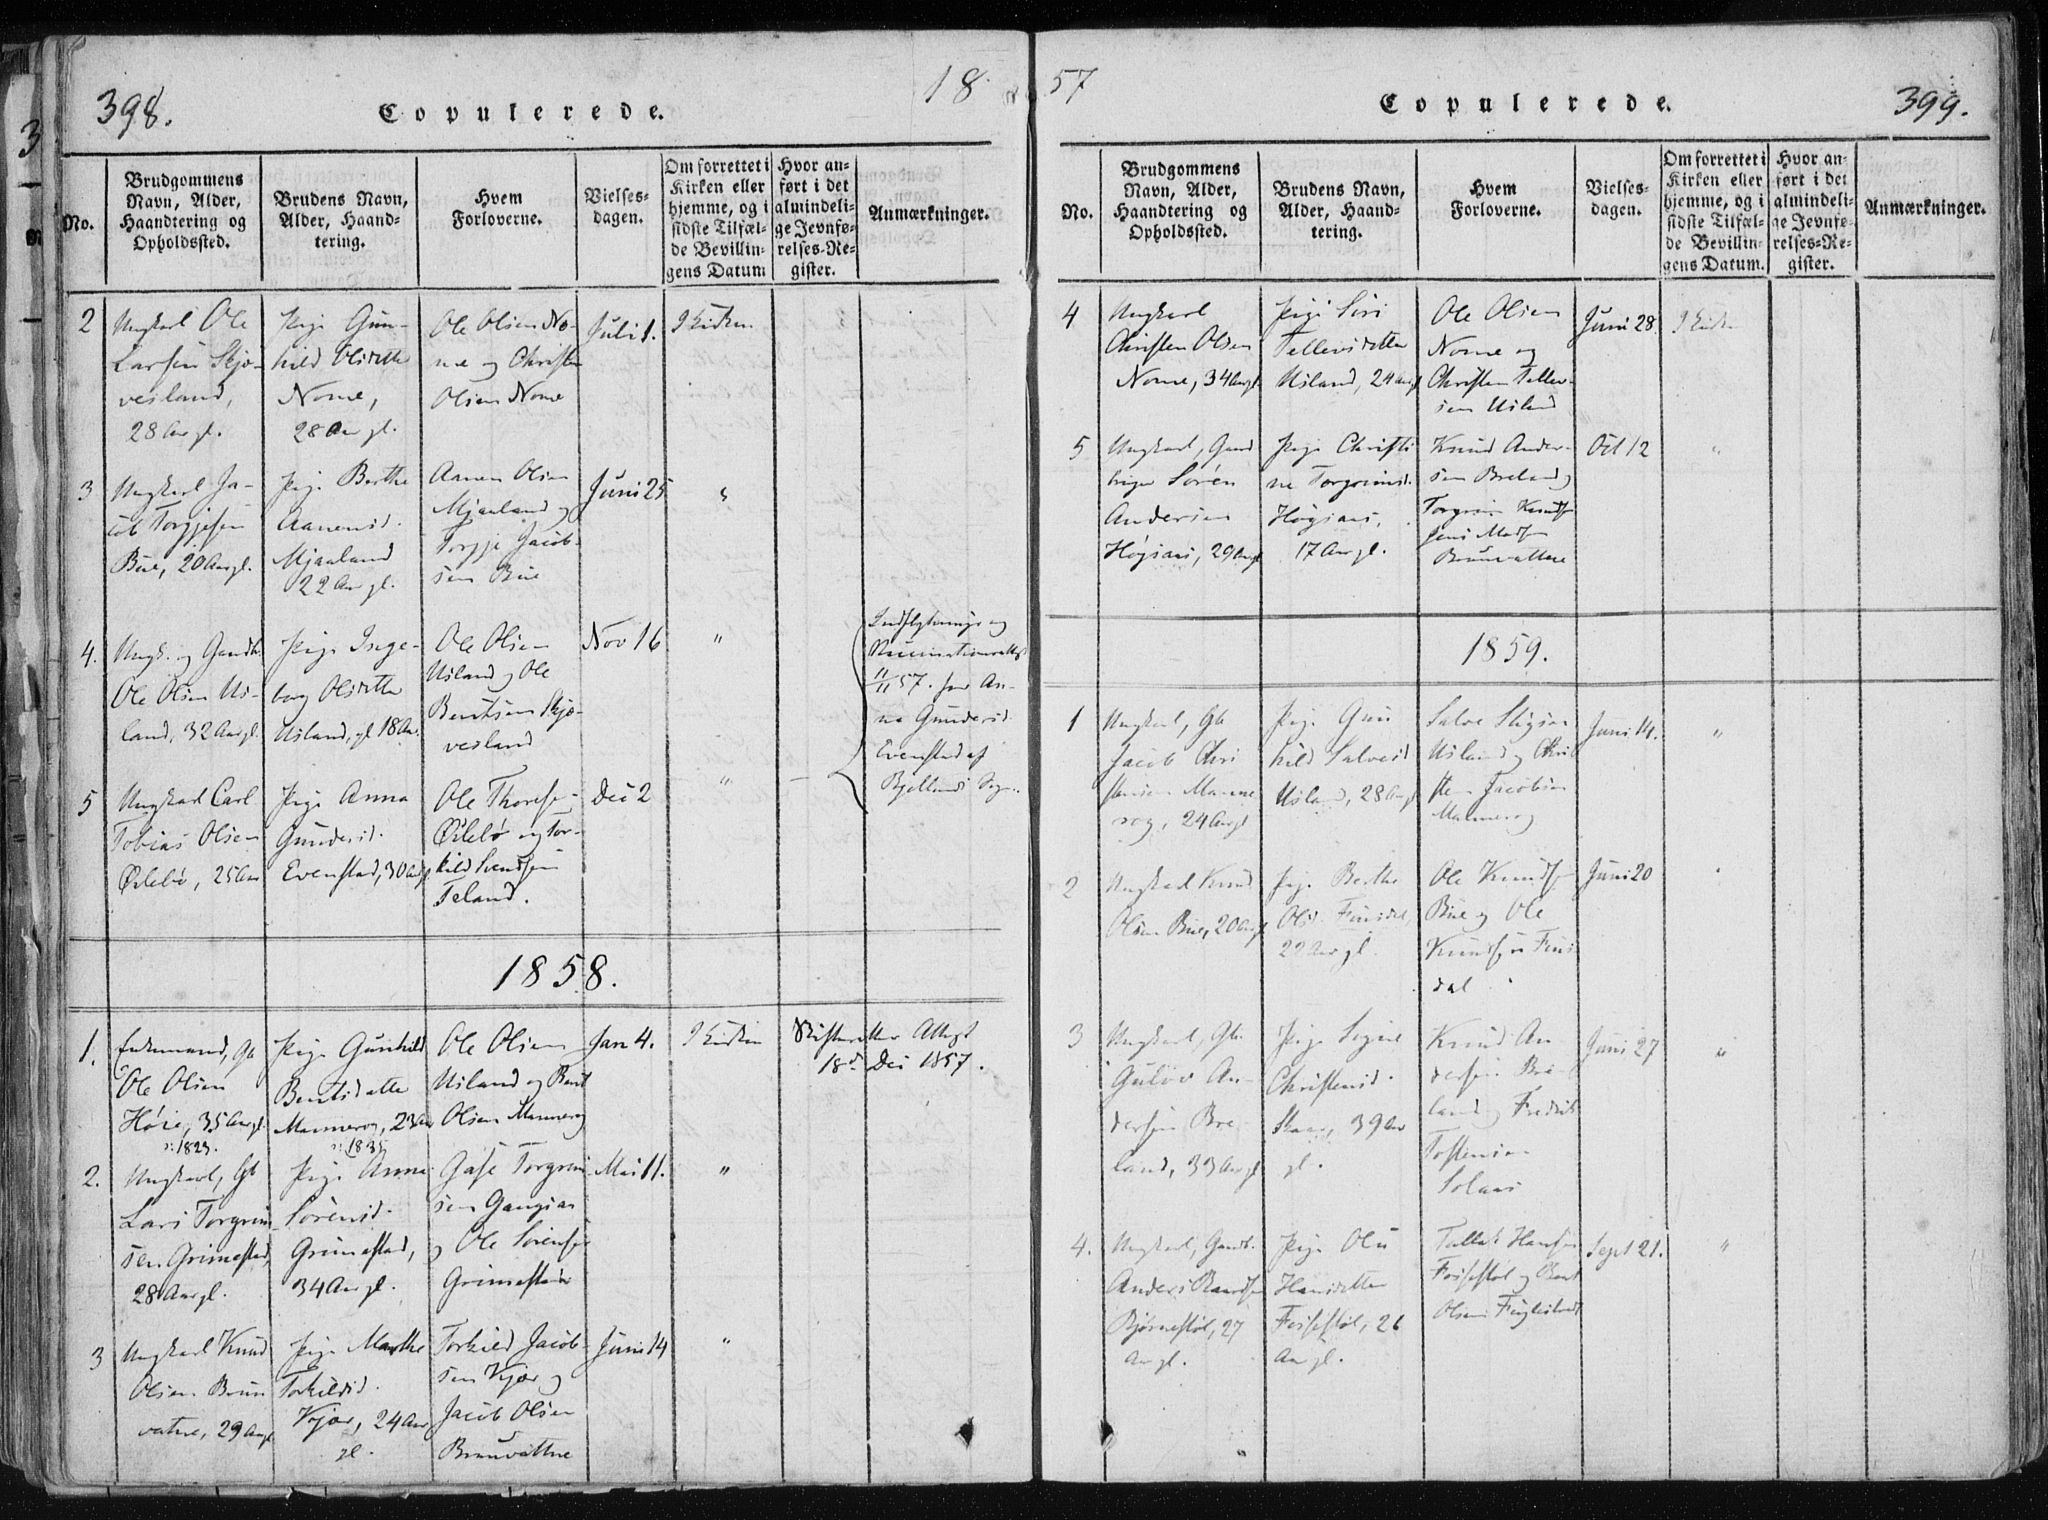 398.
Copulerede.
18
No.
Brudgommens
Navn, Alder,
Haandtering og
Opholdssted.
Brudens Navn,
Alder, Haand-
tering.
Hvem
Forloverne.
Vielses-
dagen.
Om forrettet i
Kirken eller
hjemme, og i
sidste Tilfæl-
de Bevillin-
gens Datum
Hvor an-
ført i det
almindeli-
ge Jevnfø-
relses-Re-
gister.
Anmærkninger.
2
Ungkarl Ole
Larsen Skjø-
vesland,
28 Aar gl.
Pige Gun-
hild Olsdatter
Nome,
28 Aar gl.
Ole Olsen No-
me og Christen
Olsen Nome
Juli 1.
I Kirken
3
Ungkarl Ja-
cob Torgjesen
Bue, 20 Aar gl.
Pige Berthe
Aanensd.
Mjaaland
22 Aar gl.
Aanen Olsen
Mjaaland og
Torgje Jacob-
sen Bue
Juni 25
"
4.
Ungk. og Gaardb.
Ole Olsen Us-
land, 32 Aar gl.
Pige Inge-
borg Olsdatter
Usland, gl 18 Aar.
Ole Olsen
Usland og Ole
Bentsen Skjø-
vesland
Nov 16
"
Indflytnings og
11/11 57. for An-
ne Gundersd.
Evenstad af
Bjellands Sogn.
5
Ungkarl Carl
Tobias Olsen
Øslebø, 25 Aar
Pige Anna
Gundersd.
Evenstad, 30 Aar gl
Ole Thorsen
Øslebø og Tor-
kild Svendsen
Feland.
Dec 2
"
1858.
1.
Enkemand, Gb
Ole Olsen
Høie, 35 Aar gl.
1823.
Pige Gunhild
Bentsdatter
Mannerog, 23 Aar
1835
Ole Olsen
Usland og Bent
Olsen Mannerog
Jan 4.
I Kirken
Skifteretten Attest
18d Dec 1857.
2.
Ungkarl, Gb
Lars Torgrim-
sen Grimestad,
28 Aar gl.
Pige Anna
Sørensd.
Grimestad,
34 Aar gl.
Torgrim
sen
og Ole Sørensen
Grimestad
Mai 11.
"
3
Ungkarl Knud
Olsen Brun
vatne, 29 Aar gl
Pige Marthe
Torkildsd.
Kjær, 24 Aar
gl.
Torkild Jacob-
sen Kjær og
Jacob Olsen
Brunvattne
Juni 14
"
57
Copulerede.
399.
No.
Brudgommens
Navn, Alder,
Haandtering og
Opholdssted.
Brudens Navn,
Alder, Haand-
tering.
Hvem
Forloverne.
Vielses-
dagen.
Om forrettet i
Kirken eller
hjemme, og i
sidste Tilfæl-
de Bevillin-
gens Datum.
Hvor an-
ført i det
almindeli-
ge Jevnfø-
relses-Re-
gister.
Anmærkninger.
4
Ungkarl
Christen Olsen
Nome, 34 Aar gl.
Pige Siri
Tellevsdatter
Usland, 24 Aar gl
Ole Olsen
Nome og
Christen Tellev-
sen Usland
Juni 28
I Kirken
5
Ungkarl, Gaard
bruger Søren
Andersen
Høgsaas, 29 Aar gl
Pige Christi
ne Torgrimsd.
Høgsaas,
17 Aar gl.
Knud Ander-
sen Breland og
Torgrim Knudsen
Jens Madsen
Brunvattne
Oct 12
"
1859.
1
Ungkarl, Gb
Jacob Chri
stensen Manne
rog, 24 Aar gl
Pige Gun
hild Salvesd
Usland, 28 Aar gl
Salve Stigsen
Usland og Chri
sten Jacobsen
Mannerog
Juni 14.
"
2
Ungkarl Knud
Olsen Bue, 20 Aar gl
Pige Berthe
Olsd. Finsdal,
22 Aar gl.
Ole Knudsen
Bue og Ole
Knudsen Fins
dal
Juni 20
"
3
Ungkarl, Gb.
Gulov An-
dersen Bre-
land, 33 Aar gl
Pige Signe
Christensd.
39 Aar
gl.
Knud An
dersen Bre-
land og Fredrik
Tostensen
Solaas
Juni 27
"
4.
Ungkarl, Gaardb.
Anders Baardsen
Bjørnestøl, 27
Aar gl.
Pige Olu
Hansdatter
Fossestøl, 26
Aar gl.
Tallak Hansen
Fossestøl og Bent
Olsen Fuglestvedt
Sept 21.
"